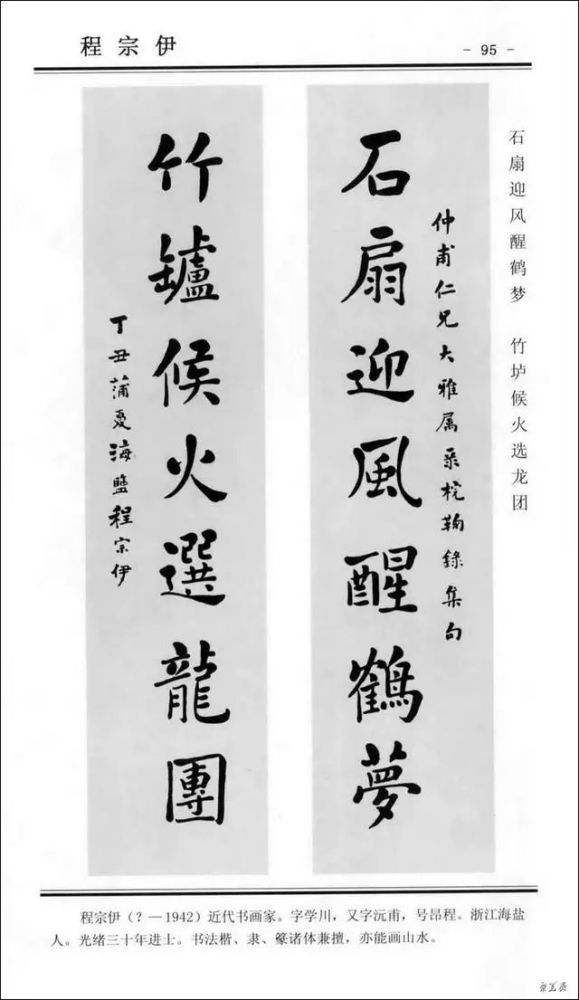 程宗伊
- 95 -
石扇迎风醒鹤梦 竹垆候火选龙团
仲甫仁兄大雅属采梡鞠錄集句
石扇迎風醒鶴夢
竹罏候火選龍團
丁丑蒲夏海鹽程宗伊
程宗伊（？—1942）近代书画家。字学川，又字沅甫，号昂程。浙江海盐
人。光绪三十年进士。书法楷、隶、篆诸体兼擅，亦能画山水。